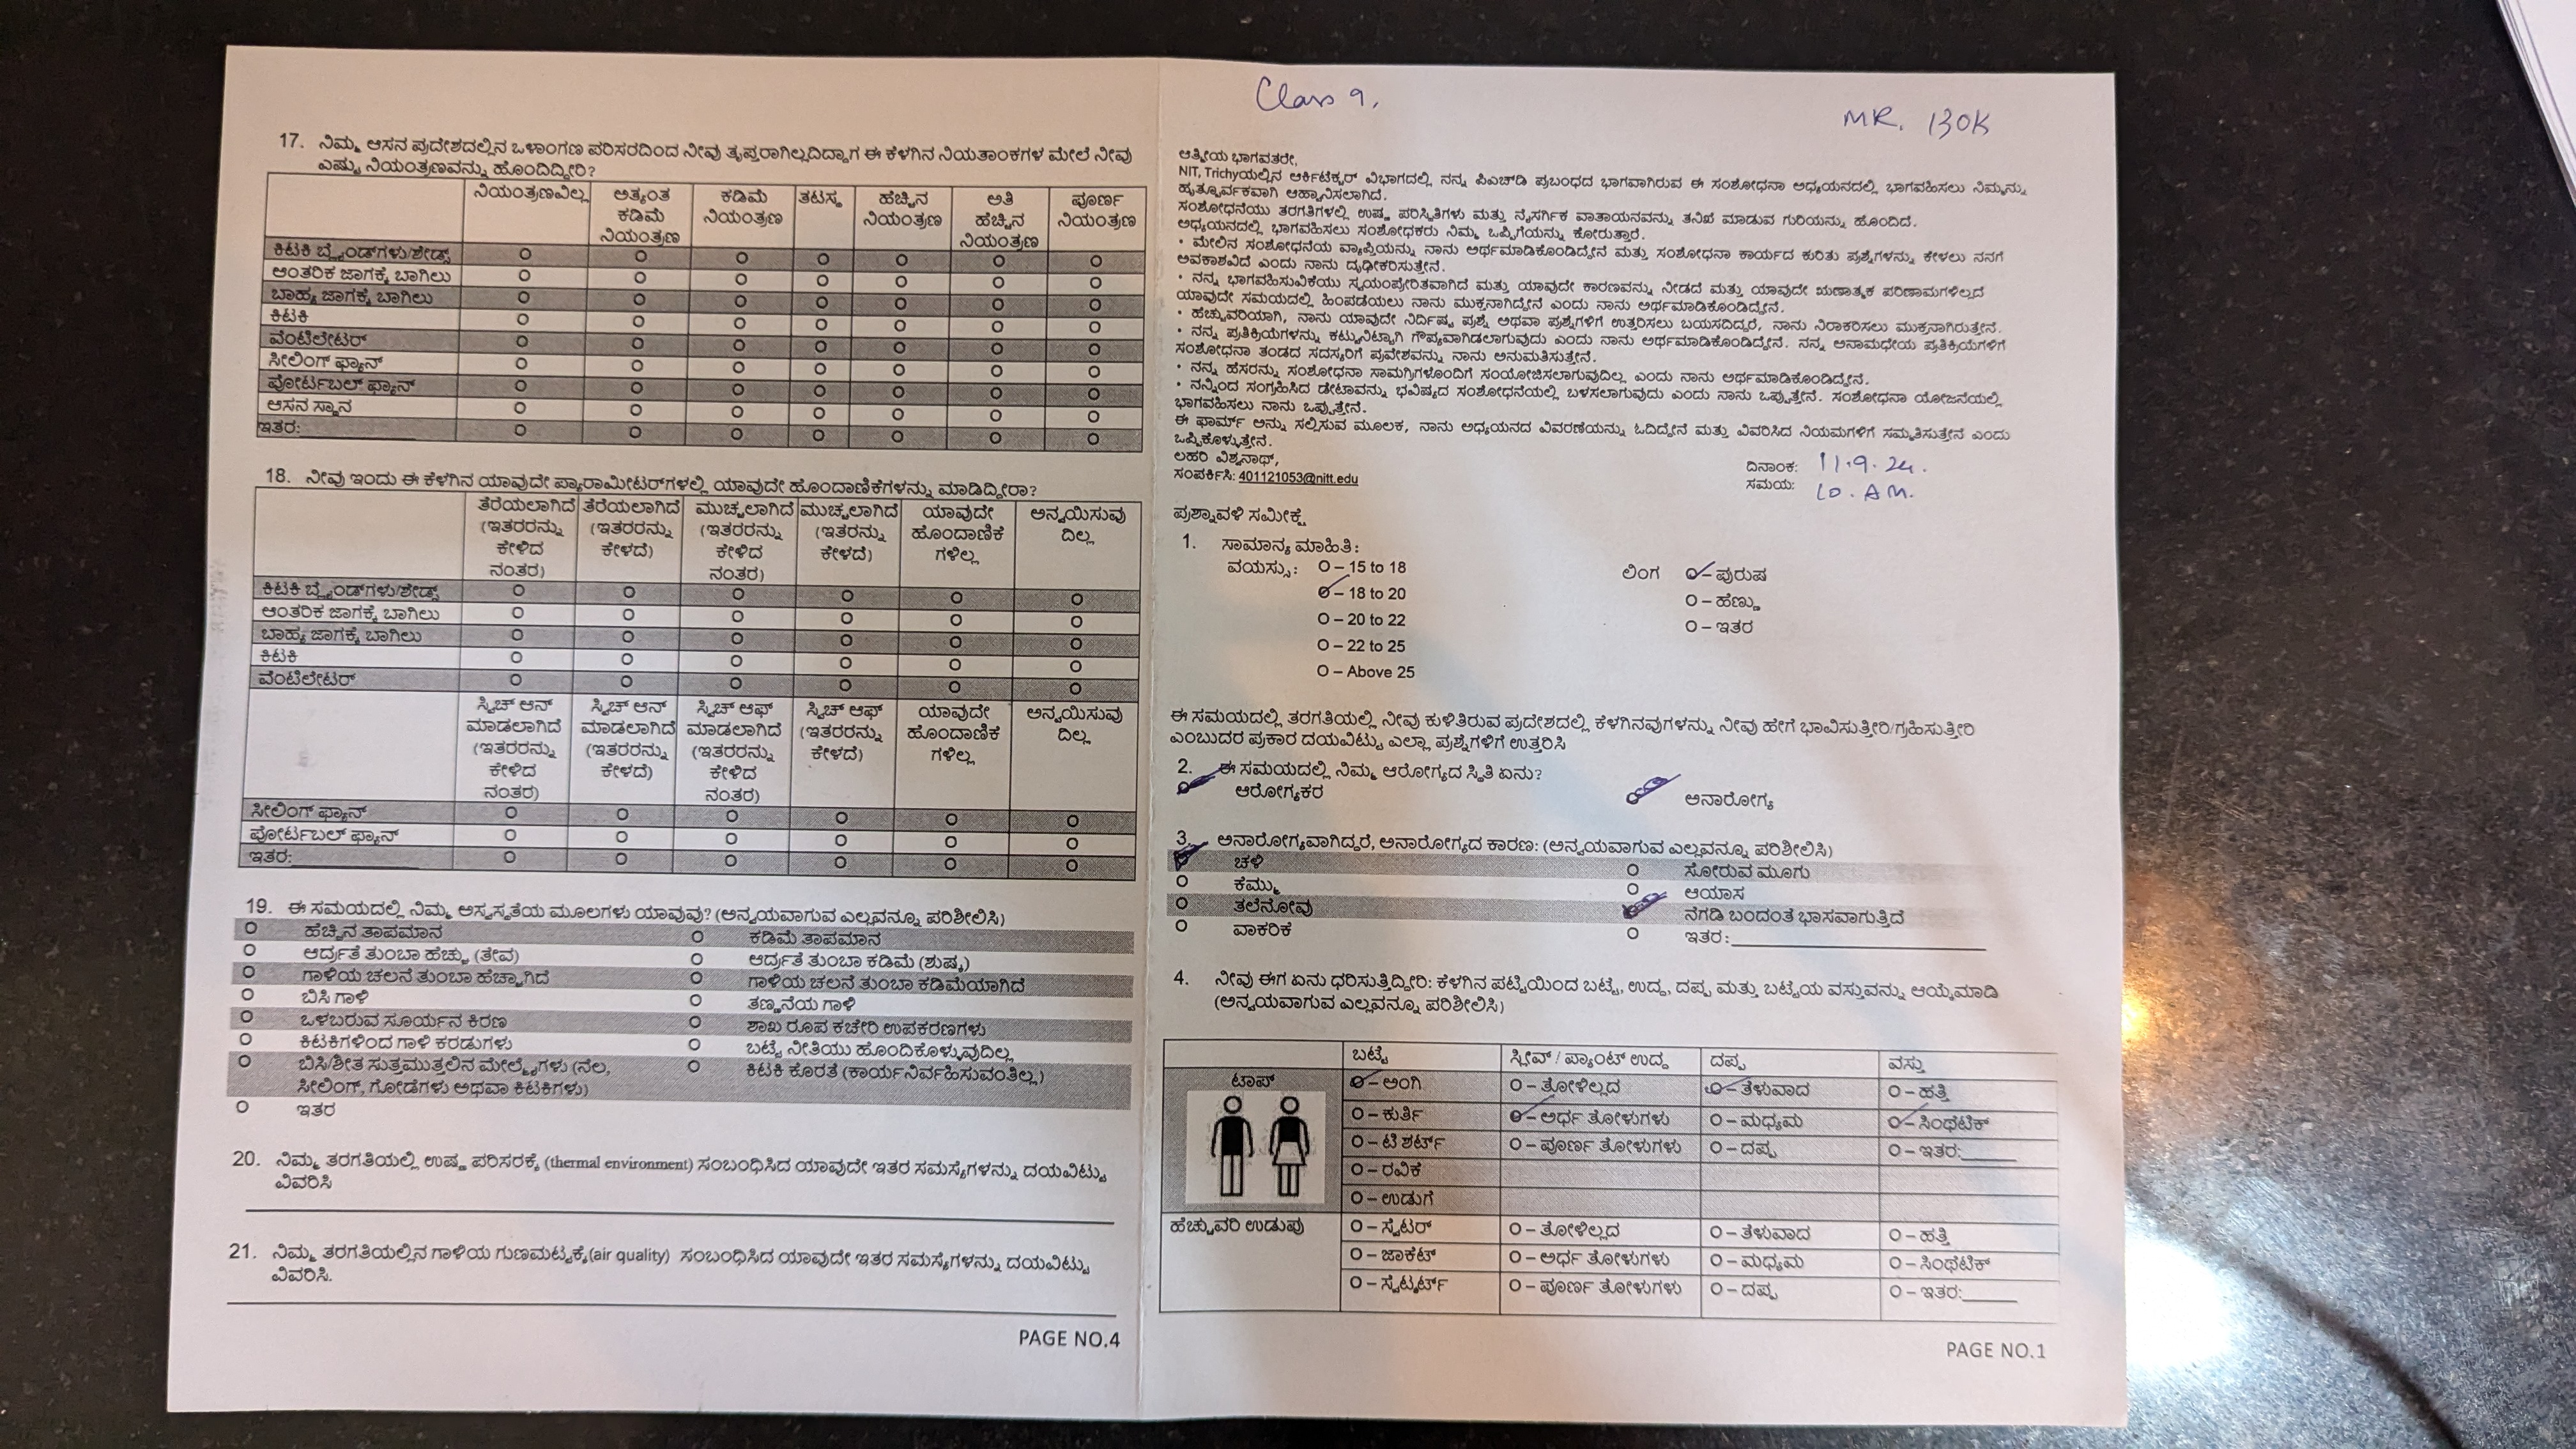 17. ನಿಮ್ಮ ಆಸನ ಪ್ರದೇಶದಲ್ಲಿನ ಒಳಾಂಗಣ ಪರಿಸರದಿಂದ ನೀವು ತೃಪ್ತರಾಗಿಲ್ಲದಿದ್ದಾಗ ಈ ಕೆಳಗಿನ ನಿಯತಾಂಕಗಳ ಮೇಲೆ ನೀವು
ಎಷ್ಟು ನಿಯಂತ್ರಣವನ್ನು ಹೊಂದಿದ್ದೀರಿ?
ನಿಯಂತ್ರಣವಿಲ್ಲ ಅತ್ಯಂತ ಕಡಿಮೆ ನಿಯಂತ್ರಣ ಕಡಿಮೆ ನಿಯಂತ್ರಣ ತಟಸ್ಥ ಹೆಚ್ಚಿನ ನಿಯಂತ್ರಣ ಅತಿ ಹೆಚ್ಚಿನ ನಿಯಂತ್ರಣ ಪೂರ್ಣ ನಿಯಂತ್ರಣ
ಕಿಟಕಿ ಬ್ಲೈಂಡ್‌ಗಳು/ಶೇಡ್ಸ್
ಆಂತರಿಕ ಜಾಗಕ್ಕೆ ಬಾಗಿಲು
ಬಾಹ್ಯ ಜಾಗಕ್ಕೆ ಬಾಗಿಲು
ಕಿಟಕಿ
ವೆಂಟಿಲೇಟರ್
ಸೀಲಿಂಗ್ ಫ್ಯಾನ್
ಪೋರ್ಟಬಲ್ ಫ್ಯಾನ್
ಆಸನ ಸ್ಥಾನ
ಇತರ:
18. ನೀವು ಇಂದು ಈ ಕೆಳಗಿನ ಯಾವುದೇ ಪ್ಯಾರಾಮೀಟರ್‌ಗಳಲ್ಲಿ ಯಾವುದೇ ಹೊಂದಾಣಿಕೆಗಳನ್ನು ಮಾಡಿದ್ದೀರಾ?
ತೆರೆಯಲಾಗಿದೆ (ಇತರರನ್ನು ಕೇಳಿದ ನಂತರ) ತೆರೆಯಲಾಗಿದೆ (ಇತರರನ್ನು ಕೇಳದೆ) ಮುಚ್ಚಲಾಗಿದೆ (ಇತರರನ್ನು ಕೇಳಿದ ನಂತರ) ಮುಚ್ಚಲಾಗಿದೆ (ಇತರರನ್ನು ಕೇಳದೆ) ಯಾವುದೇ ಹೊಂದಾಣಿಕೆ ಗಳಿಲ್ಲ ಅನ್ವಯಿಸುವು ದಿಲ್ಲ
ಕಿಟಕಿ ಬ್ಲೈಂಡ್‌ಗಳು/ಶೇಡ್ಸ್
ಆಂತರಿಕ ಜಾಗಕ್ಕೆ ಬಾಗಿಲು
ಬಾಹ್ಯ ಜಾಗಕ್ಕೆ ಬಾಗಿಲು
ಕಿಟಕಿ
ವೆಂಟಿಲೇಟರ್
ಸ್ವಿಚ್ ಆನ್ ಮಾಡಲಾಗಿದೆ (ಇತರರನ್ನು ಕೇಳಿದ ನಂತರ) ಸ್ವಿಚ್ ಆನ್ ಮಾಡಲಾಗಿದೆ (ಇತರರನ್ನು ಕೇಳದೆ) ಸ್ವಿಚ್ ಆಫ್ ಮಾಡಲಾಗಿದೆ (ಇತರರನ್ನು ಕೇಳಿದ ನಂತರ) ಸ್ವಿಚ್ ಆಫ್ (ಇತರರನ್ನು ಕೇಳದೆ) ಯಾವುದೇ ಹೊಂದಾಣಿಕೆ ಗಳಿಲ್ಲ ಅನ್ವಯಿಸುವು ದಿಲ್ಲ
ಸೀಲಿಂಗ್ ಫ್ಯಾನ್
ಪೋರ್ಟಬಲ್ ಫ್ಯಾನ್
ಇತರ:
19. ಈ ಸಮಯದಲ್ಲಿ ನಿಮ್ಮ ಅಸ್ವಸ್ಥತೆಯ ಮೂಲಗಳು ಯಾವುವು? (ಅನ್ವಯವಾಗುವ ಎಲ್ಲವನ್ನೂ ಪರಿಶೀಲಿಸಿ)
ಹೆಚ್ಚಿನ ತಾಪಮಾನ ಕಡಿಮೆ ತಾಪಮಾನ
ಆರ್ದ್ರತೆ ತುಂಬಾ ಹೆಚ್ಚು (ತೇವ) ಆರ್ದ್ರತೆ ತುಂಬಾ ಕಡಿಮೆ (ಶುಷ್ಕ)
ಗಾಳಿಯ ಚಲನೆ ತುಂಬಾ ಹೆಚ್ಚಾಗಿದೆ ಗಾಳಿಯ ಚಲನೆ ತುಂಬಾ ಕಡಿಮೆಯಾಗಿದೆ
ಬಿಸಿ ಗಾಳಿ ತಣ್ಣನೆಯ ಗಾಳಿ
ಒಳಬರುವ ಸೂರ್ಯನ ಕಿರಣ ಶಾಖ ರೂಪ ಕಚೇರಿ ಉಪಕರಣಗಳು
ಕಿಟಕಿಗಳಿಂದ ಗಾಳಿ ಕರಡುಗಳು ಬಟ್ಟೆ ನೀತಿಯು ಹೊಂದಿಕೊಳ್ಳುವುದಿಲ್ಲ
ಬಿಸಿ/ಶೀತ ಸುತ್ತಮುತ್ತಲಿನ ಮೇಲ್ಮೈಗಳು (ನೆಲ, ಕಿಟಕಿ ಕೊರತೆ (ಕಾರ್ಯನಿರ್ವಹಿಸುವಂತಿಲ್ಲ)
ಸೀಲಿಂಗ್, ಗೋಡೆಗಳು ಅಥವಾ ಕಿಟಕಿಗಳು)
ಇತರ
20. ನಿಮ್ಮ ತರಗತಿಯಲ್ಲಿ ಉಷ್ಣ ಪರಿಸರಕ್ಕೆ (thermal environment) ಸಂಬಂಧಿಸಿದ ಯಾವುದೇ ಇತರ ಸಮಸ್ಯೆಗಳನ್ನು ದಯವಿಟ್ಟು
ವಿವರಿಸಿ
21. ನಿಮ್ಮ ತರಗತಿಯಲ್ಲಿನ ಗಾಳಿಯ ಗುಣಮಟ್ಟಕ್ಕೆ(air quality) ಸಂಬಂಧಿಸಿದ ಯಾವುದೇ ಇತರ ಸಮಸ್ಯೆಗಳನ್ನು ದಯವಿಟ್ಟು
ವಿವರಿಸಿ.
PAGE NO.4
Class 9.
MR. 130K
ಆತ್ಮೀಯ ಭಾಗವತರೇ,
NIT, Trichyಯಲ್ಲಿನ ಆರ್ಕಿಟೆಕ್ಚರ್ ವಿಭಾಗದಲ್ಲಿ ನನ್ನ ಪಿಎಚ್‌ಡಿ ಪ್ರಬಂಧದ ಭಾಗವಾಗಿರುವ ಈ ಸಂಶೋಧನಾ ಅಧ್ಯಯನದಲ್ಲಿ ಭಾಗವಹಿಸಲು ನಿಮ್ಮನ್ನು
ಹೃತ್ಪೂರ್ವಕವಾಗಿ ಆಹ್ವಾನಿಸಲಾಗಿದೆ.
ಸಂಶೋಧನೆಯು ತರಗತಿಗಳಲ್ಲಿ ಉಷ್ಣ ಪರಿಸ್ಥಿತಿಗಳು ಮತ್ತು ನೈಸರ್ಗಿಕ ವಾತಾಯನವನ್ನು ತನಿಖೆ ಮಾಡುವ ಗುರಿಯನ್ನು ಹೊಂದಿದೆ.
ಅಧ್ಯಯನದಲ್ಲಿ ಭಾಗವಹಿಸಲು ಸಂಶೋಧಕರು ನಿಮ್ಮ ಒಪ್ಪಿಗೆಯನ್ನು ಕೋರುತ್ತಾರೆ.
• ಮೇಲಿನ ಸಂಶೋಧನೆಯ ವ್ಯಾಪ್ತಿಯನ್ನು ನಾನು ಅರ್ಥಮಾಡಿಕೊಂಡಿದ್ದೇನೆ ಮತ್ತು ಸಂಶೋಧನಾ ಕಾರ್ಯದ ಕುರಿತು ಪ್ರಶ್ನೆಗಳನ್ನು ಕೇಳಲು ನನಗೆ
ಅವಕಾಶವಿದೆ ಎಂದು ನಾನು ದೃಢೀಕರಿಸುತ್ತೇನೆ.
• ನನ್ನ ಭಾಗವಹಿಸುವಿಕೆಯು ಸ್ವಯಂಪ್ರೇರಿತವಾಗಿದೆ ಮತ್ತು ಯಾವುದೇ ಕಾರಣವನ್ನು ನೀಡದೆ ಮತ್ತು ಯಾವುದೇ ಋಣಾತ್ಮಕ ಪರಿಣಾಮಗಳಿಲ್ಲದೆ
ಯಾವುದೇ ಸಮಯದಲ್ಲಿ ಹಿಂಪಡೆಯಲು ನಾನು ಮುಕ್ತನಾಗಿದ್ದೇನೆ ಎಂದು ನಾನು ಅರ್ಥಮಾಡಿಕೊಂಡಿದ್ದೇನೆ.
• ಹೆಚ್ಚುವರಿಯಾಗಿ, ನಾನು ಯಾವುದೇ ನಿರ್ದಿಷ್ಟ ಪ್ರಶ್ನೆ ಅಥವಾ ಪ್ರಶ್ನೆಗಳಿಗೆ ಉತ್ತರಿಸಲು ಬಯಸದಿದ್ದರೆ, ನಾನು ನಿರಾಕರಿಸಲು ಮುಕ್ತನಾಗಿರುತ್ತೇನೆ.
• ನನ್ನ ಪ್ರತಿಕ್ರಿಯೆಗಳನ್ನು ಕಟ್ಟುನಿಟ್ಟಾಗಿ ಗೌಪ್ಯವಾಗಿಡಲಾಗುವುದು ಎಂದು ನಾನು ಅರ್ಥಮಾಡಿಕೊಂಡಿದ್ದೇನೆ. ನನ್ನ ಅನಾಮಧೇಯ ಪ್ರತಿಕ್ರಿಯೆಗಳಿಗೆ
ಸಂಶೋಧನಾ ತಂಡದ ಸದಸ್ಯರಿಗೆ ಪ್ರವೇಶವನ್ನು ನಾನು ಅನುಮತಿಸುತ್ತೇನೆ.
• ನನ್ನ ಹೆಸರನ್ನು ಸಂಶೋಧನಾ ಸಾಮಗ್ರಿಗಳೊಂದಿಗೆ ಸಂಯೋಜಿಸಲಾಗುವುದಿಲ್ಲ ಎಂದು ನಾನು ಅರ್ಥಮಾಡಿಕೊಂಡಿದ್ದೇನೆ.
• ನನ್ನಿಂದ ಸಂಗ್ರಹಿಸಿದ ಡೇಟಾವನ್ನು ಭವಿಷ್ಯದ ಸಂಶೋಧನೆಯಲ್ಲಿ ಬಳಸಲಾಗುವುದು ಎಂದು ನಾನು ಒಪ್ಪುತ್ತೇನೆ. ಸಂಶೋಧನಾ ಯೋಜನೆಯಲ್ಲಿ
ಭಾಗವಹಿಸಲು ನಾನು ಒಪ್ಪುತ್ತೇನೆ.
ಈ ಫಾರ್ಮ್ ಅನ್ನು ಸಲ್ಲಿಸುವ ಮೂಲಕ, ನಾನು ಅಧ್ಯಯನದ ವಿವರಣೆಯನ್ನು ಓದಿದ್ದೇನೆ ಮತ್ತು ವಿವರಿಸಿದ ನಿಯಮಗಳಿಗೆ ಸಮ್ಮತಿಸುತ್ತೇನೆ ಎಂದು
ಒಪ್ಪಿಕೊಳ್ಳುತ್ತೇನೆ.
ಲಹರಿ ವಿಶ್ವನಾಥ್,
ಸಂಪರ್ಕಿಸಿ: 401121053@nitt.edu
ದಿನಾಂಕ: 11.9.24.
ಸಮಯ: 10.AM.
ಪ್ರಶ್ನಾವಳಿ ಸಮೀಕ್ಷೆ
1. ಸಾಮಾನ್ಯ ಮಾಹಿತಿ:
ವಯಸ್ಸು: O – 15 to 18 ಲಿಂಗ O – ಪುರುಷ
O – 18 to 20 O – ಹೆಣ್ಣು
O – 20 to 22 O – ಇತರ
O – 22 to 25
O – Above 25
ಈ ಸಮಯದಲ್ಲಿ ತರಗತಿಯಲ್ಲಿ ನೀವು ಕುಳಿತಿರುವ ಪ್ರದೇಶದಲ್ಲಿ ಕೆಳಗಿನವುಗಳನ್ನು ನೀವು ಹೇಗೆ ಭಾವಿಸುತ್ತೀರಿ/ಗ್ರಹಿಸುತ್ತೀರಿ
ಎಂಬುದರ ಪ್ರಕಾರ ದಯವಿಟ್ಟು ಎಲ್ಲಾ ಪ್ರಶ್ನೆಗಳಿಗೆ ಉತ್ತರಿಸಿ
2. ಈ ಸಮಯದಲ್ಲಿ ನಿಮ್ಮ ಆರೋಗ್ಯದ ಸ್ಥಿತಿ ಏನು?
ಆರೋಗ್ಯಕರ ಅನಾರೋಗ್ಯ
3. ಅನಾರೋಗ್ಯವಾಗಿದ್ದರೆ, ಅನಾರೋಗ್ಯದ ಕಾರಣ: (ಅನ್ವಯವಾಗುವ ಎಲ್ಲವನ್ನೂ ಪರಿಶೀಲಿಸಿ)
ಚಳಿ ಸೋರುವ ಮೂಗು
ಕೆಮ್ಮು ಆಯಾಸ
ತಲೆನೋವು ನೆಗಡಿ ಬಂದಂತೆ ಭಾಸವಾಗುತ್ತಿದೆ
ವಾಕರಿಕೆ ಇತರ:
4. ನೀವು ಈಗ ಏನು ಧರಿಸುತ್ತಿದ್ದೀರಿ: ಕೆಳಗಿನ ಪಟ್ಟಿಯಿಂದ ಬಟ್ಟೆ, ಉದ್ದ, ದಪ್ಪ ಮತ್ತು ಬಟ್ಟೆಯ ವಸ್ತುವನ್ನು ಆಯ್ಕೆಮಾಡಿ
(ಅನ್ವಯವಾಗುವ ಎಲ್ಲವನ್ನೂ ಪರಿಶೀಲಿಸಿ)
ಬಟ್ಟೆ ಸ್ಲೀವ್ / ಪ್ಯಾಂಟ್ ಉದ್ದ ದಪ್ಪ ವಸ್ತು
ಟಾಪ್ O – ಅಂಗಿ O – ತೋಳಿಲ್ಲದ O – ತೆಳುವಾದ O – ಹತ್ತಿ
O – ಕುರ್ತಿ O – ಅರ್ಧ ತೋಳುಗಳು O – ಮಧ್ಯಮ O – ಸಿಂಥೆಟಿಕ್
O – ಟಿ ಶರ್ಟ್ O – ಪೂರ್ಣ ತೋಳುಗಳು O – ದಪ್ಪ O – ಇತರ:
O – ರವಿಕೆ
O – ಉಡುಗೆ
ಹೆಚ್ಚುವರಿ ಉಡುಪು O – ಸ್ವೆಟರ್ O – ತೋಳಿಲ್ಲದ O – ತೆಳುವಾದ O – ಹತ್ತಿ
O – ಜಾಕೆಟ್ O – ಅರ್ಧ ತೋಳುಗಳು O – ಮಧ್ಯಮ O – ಸಿಂಥೆಟಿಕ್
O – ಸ್ವೆಟ್ಶರ್ಟ್ O – ಪೂರ್ಣ ತೋಳುಗಳು O – ದಪ್ಪ O – ಇತರ:
PAGE NO.1